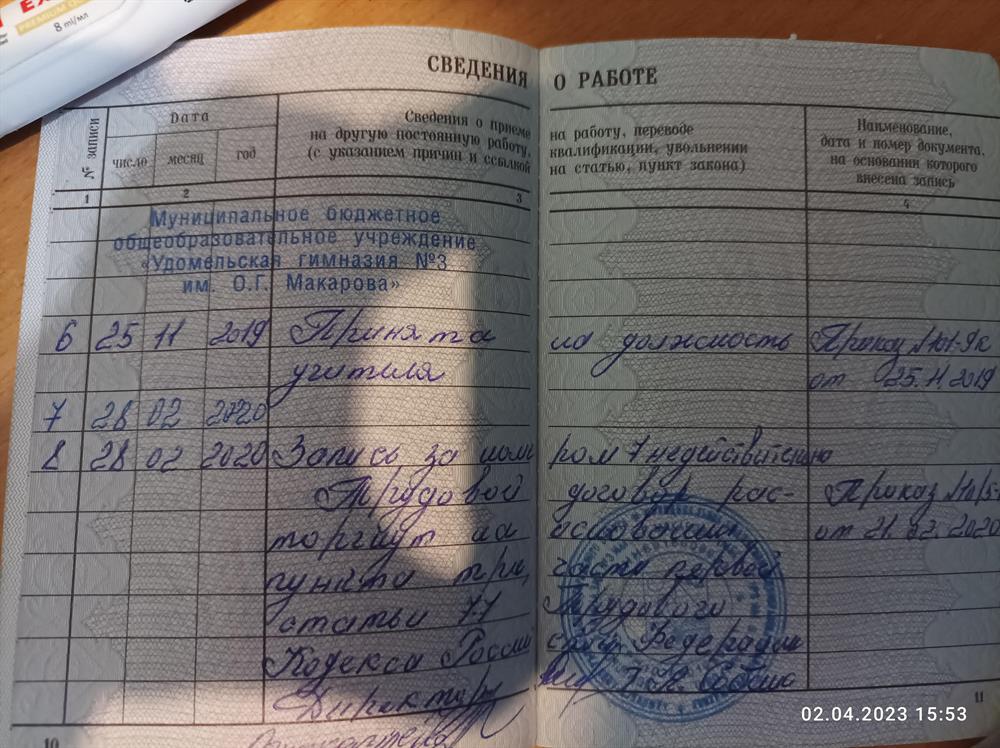 EX
PREMIUM Q
8 ml/мл
СВЕДЕНИЯ О РАБОТЕ
№ записи
Дата
число месяц год
Сведения о приеме на работу, переводе
на другую постоянную работу, квалификации, увольнении
(с указанием причин и ссылкой на статью, пункт закона)
Наименование,
дата и номер документа,
на основании которого
внесена запись
1 2 3 4
Муниципальное бюджетное
общеобразовательное учреждение
«Удомельская гимназия №3
им. О.Г. Макарова»
6 25 11 2019 Принята на должность Приказ №101-9к
учителя от 25.11.2019
7 28 02 2020
8 28 02 2020 Запись за номером 7 недействительно
Трудовой договор рас- Приказ
торгнут на основании от 21.02.2020
пункта три, части первой
статьи 77 Трудового
Кодекса Российской Федерации
Директор
10
11
02.04.2023 15:53